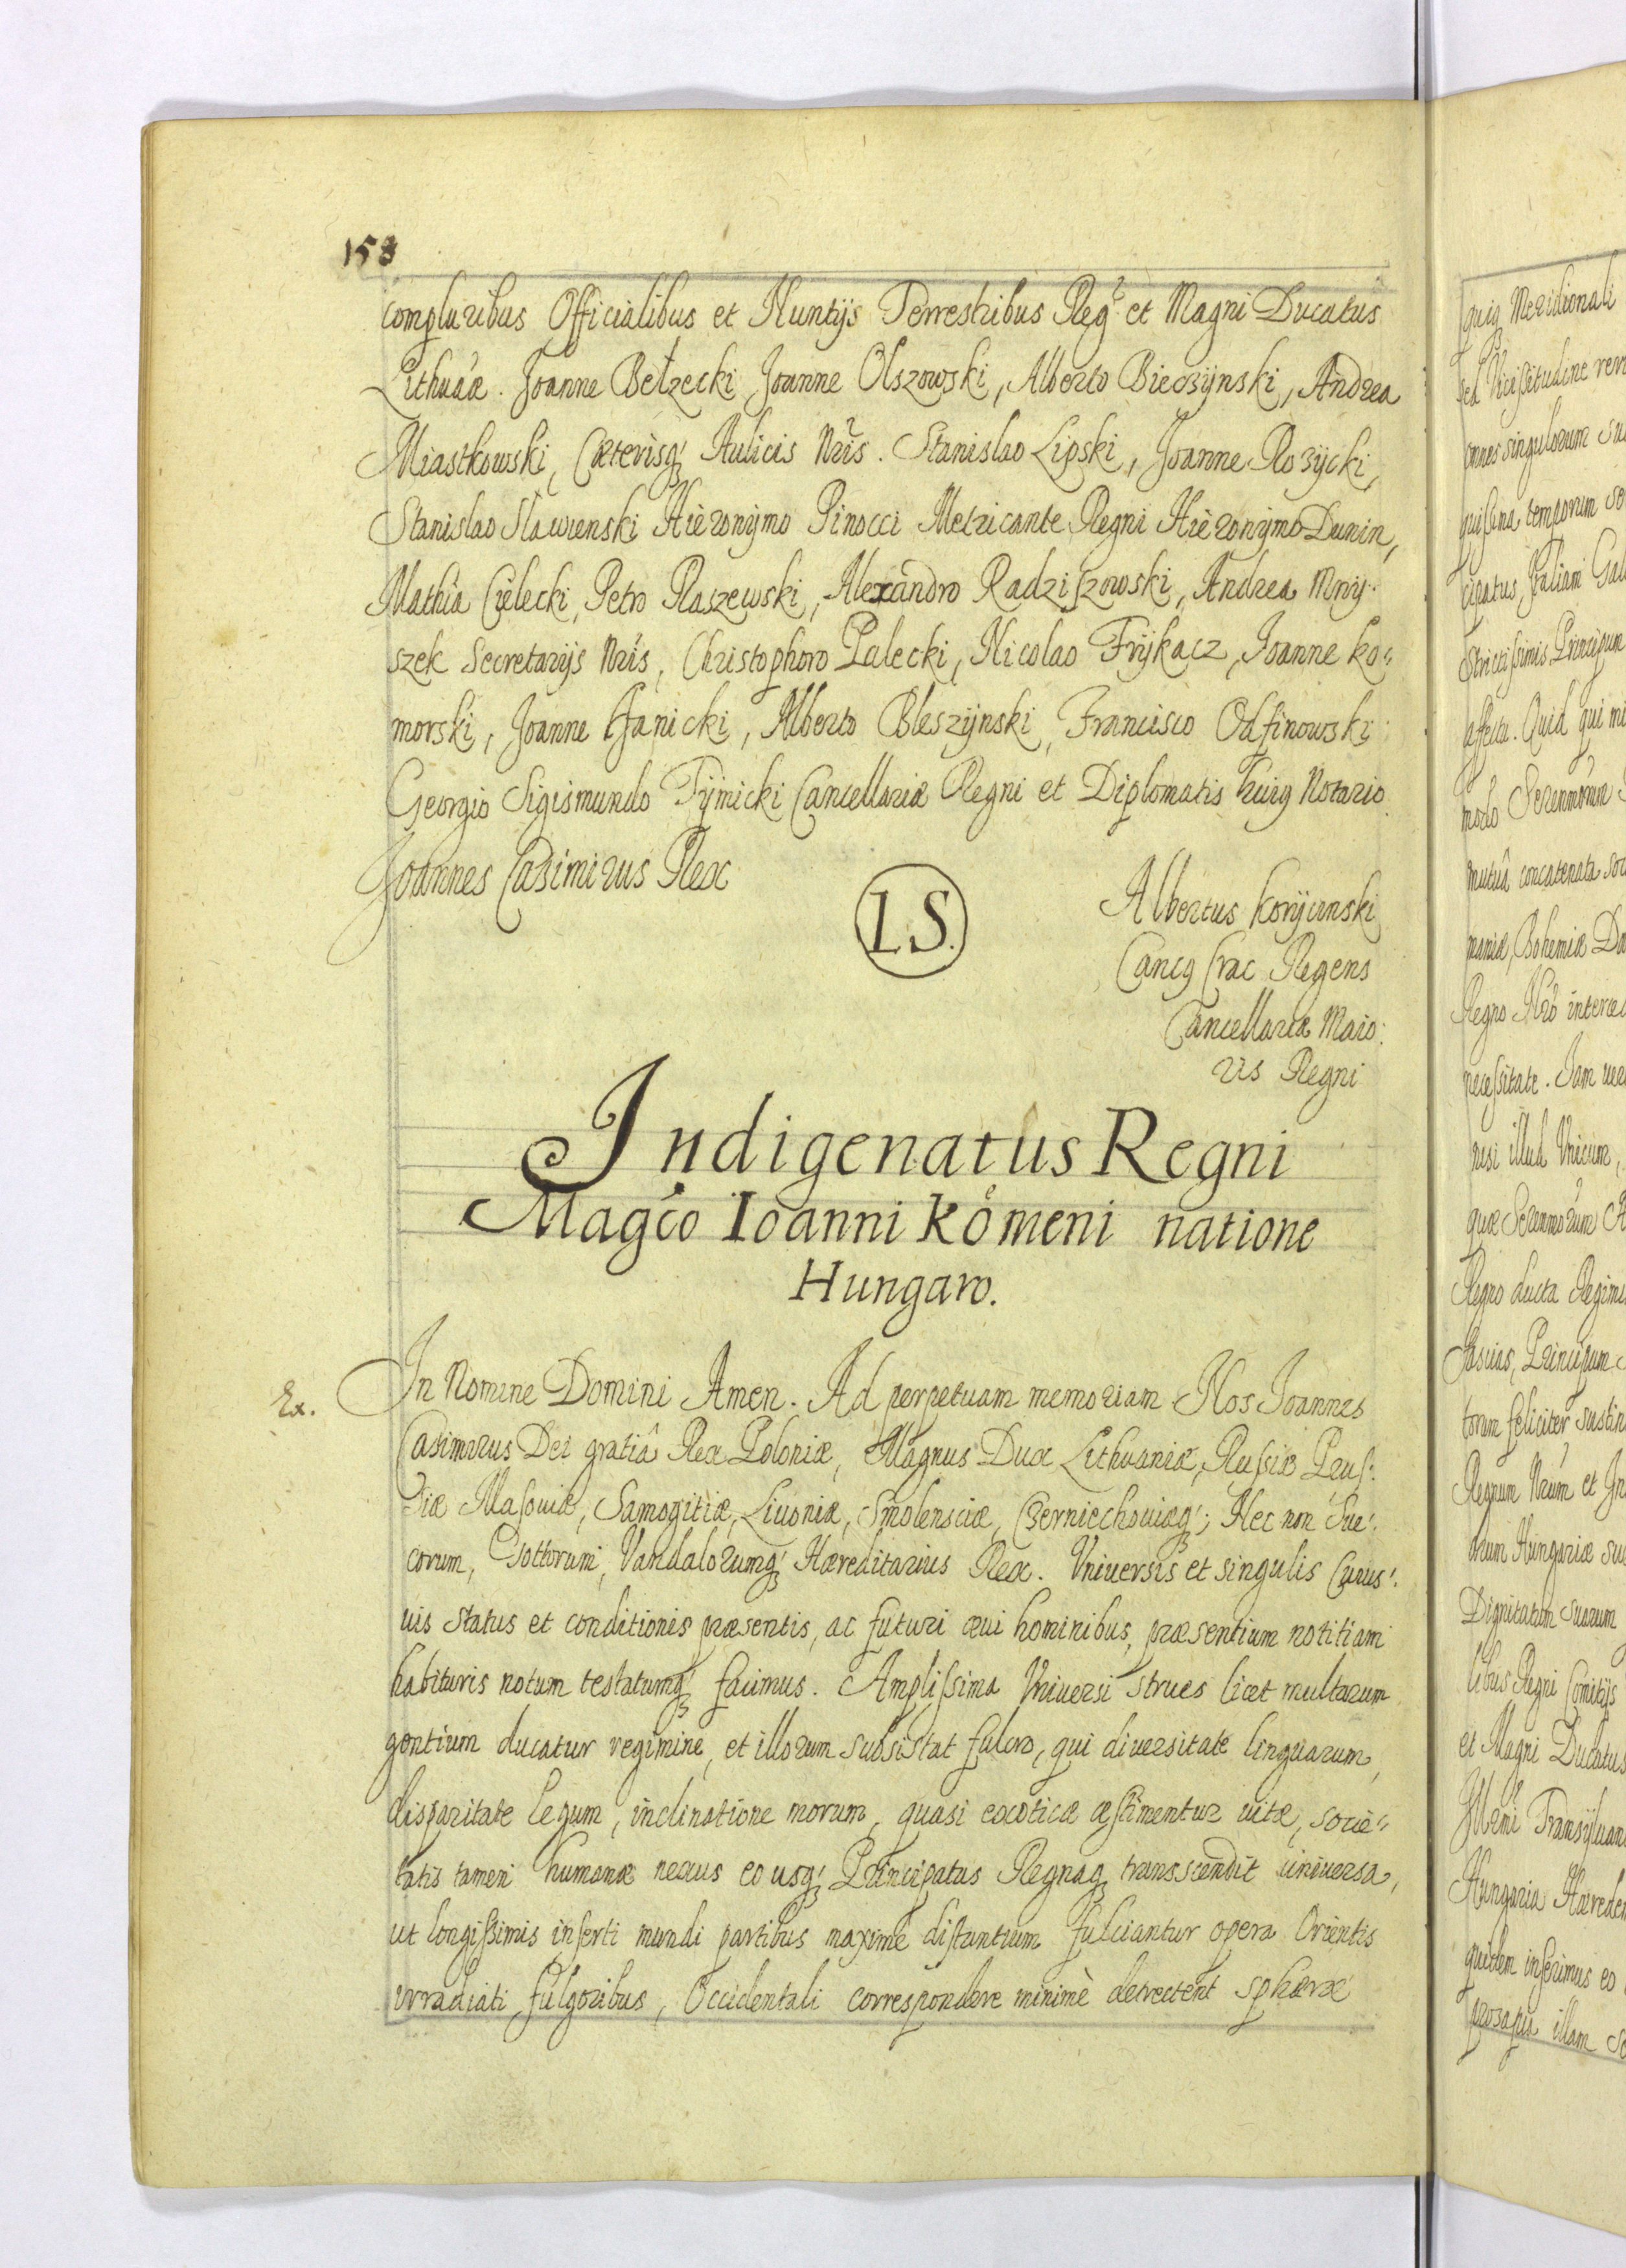 158
compluribus Officialibus et Nuntijs Terrestribus Regⁱ et Magni Ducatus
Lithuãæ. Joanne Bełzecki Joanne Olszowski, Alberto Bieczÿnski, Andrea
Miastkowski, Cæterisqʒ Aulicis Nr̃is. Stanislao Lipski, Joanne Rozÿcki,
Stanislao Sławienski Hieronÿmo Pinocci Metricante Regni Hieronÿmo Dunin,
Mathia Cielecki, Petro Raszewski, Alexandro Radziszowski, Andrea Mnÿ:
szek Secretarÿs Nr̃is, Christophoro Palecki, Nicolao Frÿkacz, Joanne Ko=
morski, Joanne Janicki, Alberto Bleszÿnski, Francisco Odfinowski
Georgio Sigismundo Tÿmicki Cancellariæ Regni et Diplomatis huiq Notario.
Joannes Casimirus Rex
L.S.
Albertus Korÿcinski
Cancq Crac Regens
Cancellariæ Maio:
ris Regni
Indigenatus Regni
Magc̃o Ioanni Kömeni natione
Hungaro.
Ex.
In Nomine Domini Amen. Ad perpetuam memoriam Nos Joannes
Casimirus Dei gratiâ Rex Poloniæ, Magnus Dux Lithuaniæ, Russiæ Prus:
siæ Masouiæ, Samogitiæ, Liuoniæ, Smolensciæ, Czerniechouiæqʒ; Nec non Sue:
corum, Gottorum, Vandalorumqʒ Hæreditarius Rex. Vniuersis et singulis Cuius:
uis status et conditionis præsentis, ac futuri æui hominibus, præsentium notitiam
habituris notum testatumqʒ facimus. Amplissima Vniuersi strues licet multarum
gentium ducatur regimine, et illorum subsistat fulcro, qui diuersitate linguarum,
disparitate legum, inclinatione morum, quasi exoticæ æstimentur uitæ, socie=
tatis tamen humanæ nexus eo usqʒ Principatus Regnaqʒ transscendit uniuersa,
ut longissimis inserti mundi partibus maximè distantium fulciantur opera Orientis
irradiati fulgoribus, Occidentali correspondere minimè detrectent sphæræ
quiq Meridionali
sed Vicissitudine
omnes singulorum
temporum
cipatus, Italiam
strictissimis Principum
affectu. Quid qui
modo Serenmorum
mutuâ concatenata
maniæ, Bohemiæ
Regno Nr̃o
necessitate. Iam
nisi illud Vnicum,
quæ Serenmorum
Regno ducta
Fascias, Principum
torum feliciter
Regnum Nr̃um et
Hungariæ
Dignitatum suarum
Regni Comitijs
et Magni Ducatus
Transÿluan
Hungaria Hæredem
quidem inserimus eo
prosapia illam